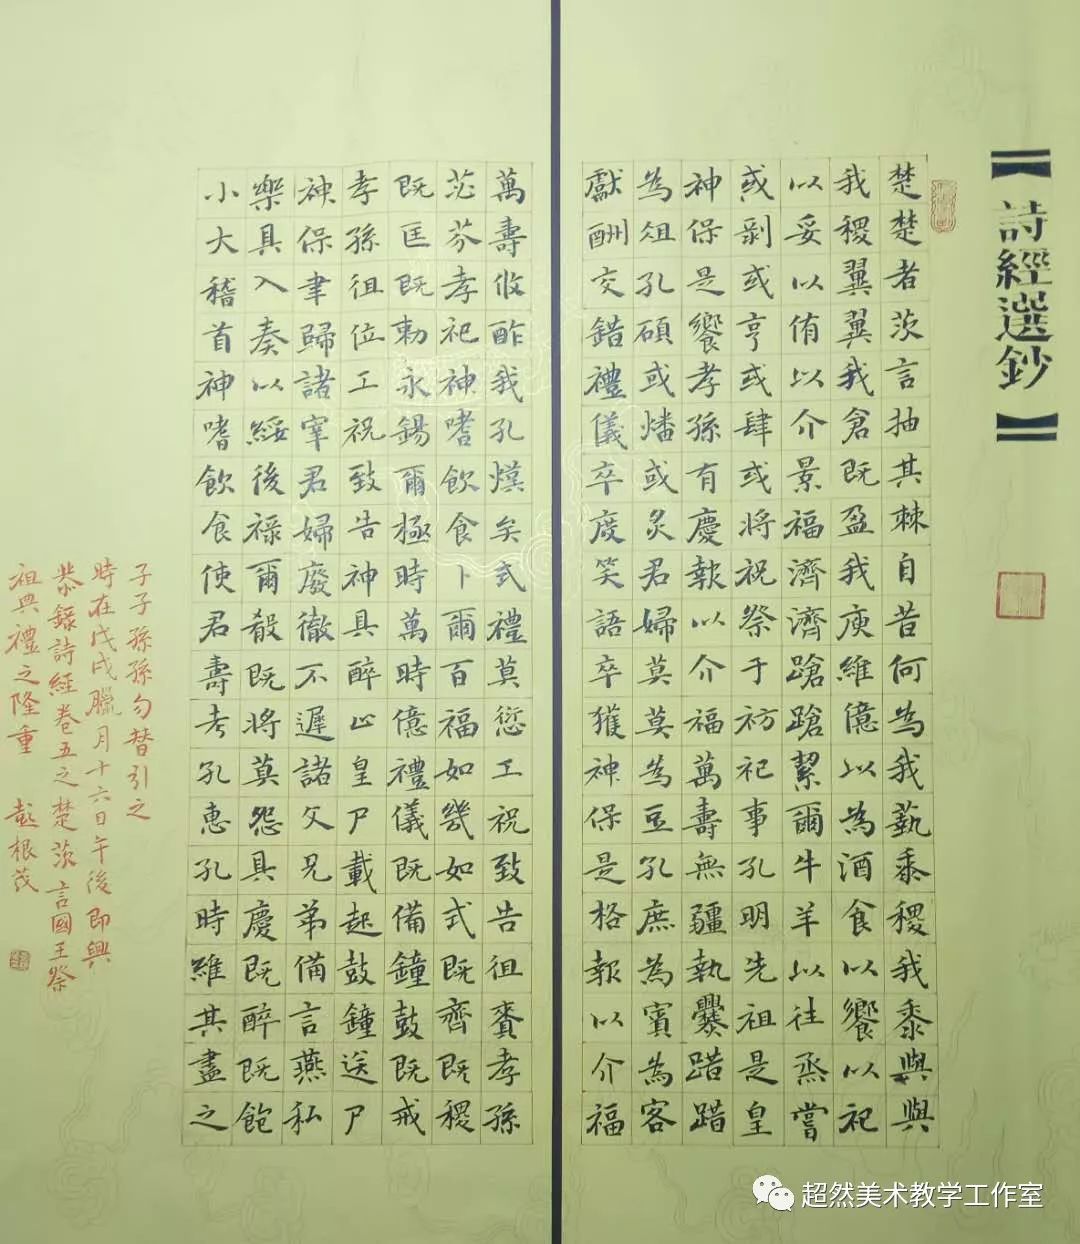 【詩經選鈔】
楚楚者茨言抽其棘自昔何為我蓺黍稷我黍與與
我稷翼翼我倉既盈我庾維億以為酒食以饗以祀
以妥以侑以介景福濟濟蹌蹌絜爾牛羊以往烝嘗
或剝或亨或肆或將祝祭于祊祀事孔明先祖是皇
神保是饗孝孫有慶報以介福萬壽無疆執爨踖踖
為俎孔碩或燔或炙君婦莫莫為豆孔庶為賓為客
獻酬交錯禮儀卒度笑語卒獲神保是格報以介福
萬壽攸酢我孔熯矣式禮莫愆工祝致告徂賚孝孫
苾芬孝祀神嗜飲食卜爾百福如幾如式既齊既稷
既匡既勅永錫爾極時萬時億禮儀既備鐘鼓既戒
孝孫徂位工祝致告神具醉止皇尸載起鼓鐘送尸
神保聿歸諸宰君婦廢徹不遲諸父兄弟備言燕私
樂具入奏以綏後祿爾殽既將莫怨具慶既醉既飽
小大稽首神嗜飲食使君壽考孔惠孔時維其盡之
子子孫孫勿替引之
時在戊戌臘月十六日午後即興
恭錄詩經卷五之楚茨言國王祭
祖典禮之隆重 趙根茂
超然美术教学工作室